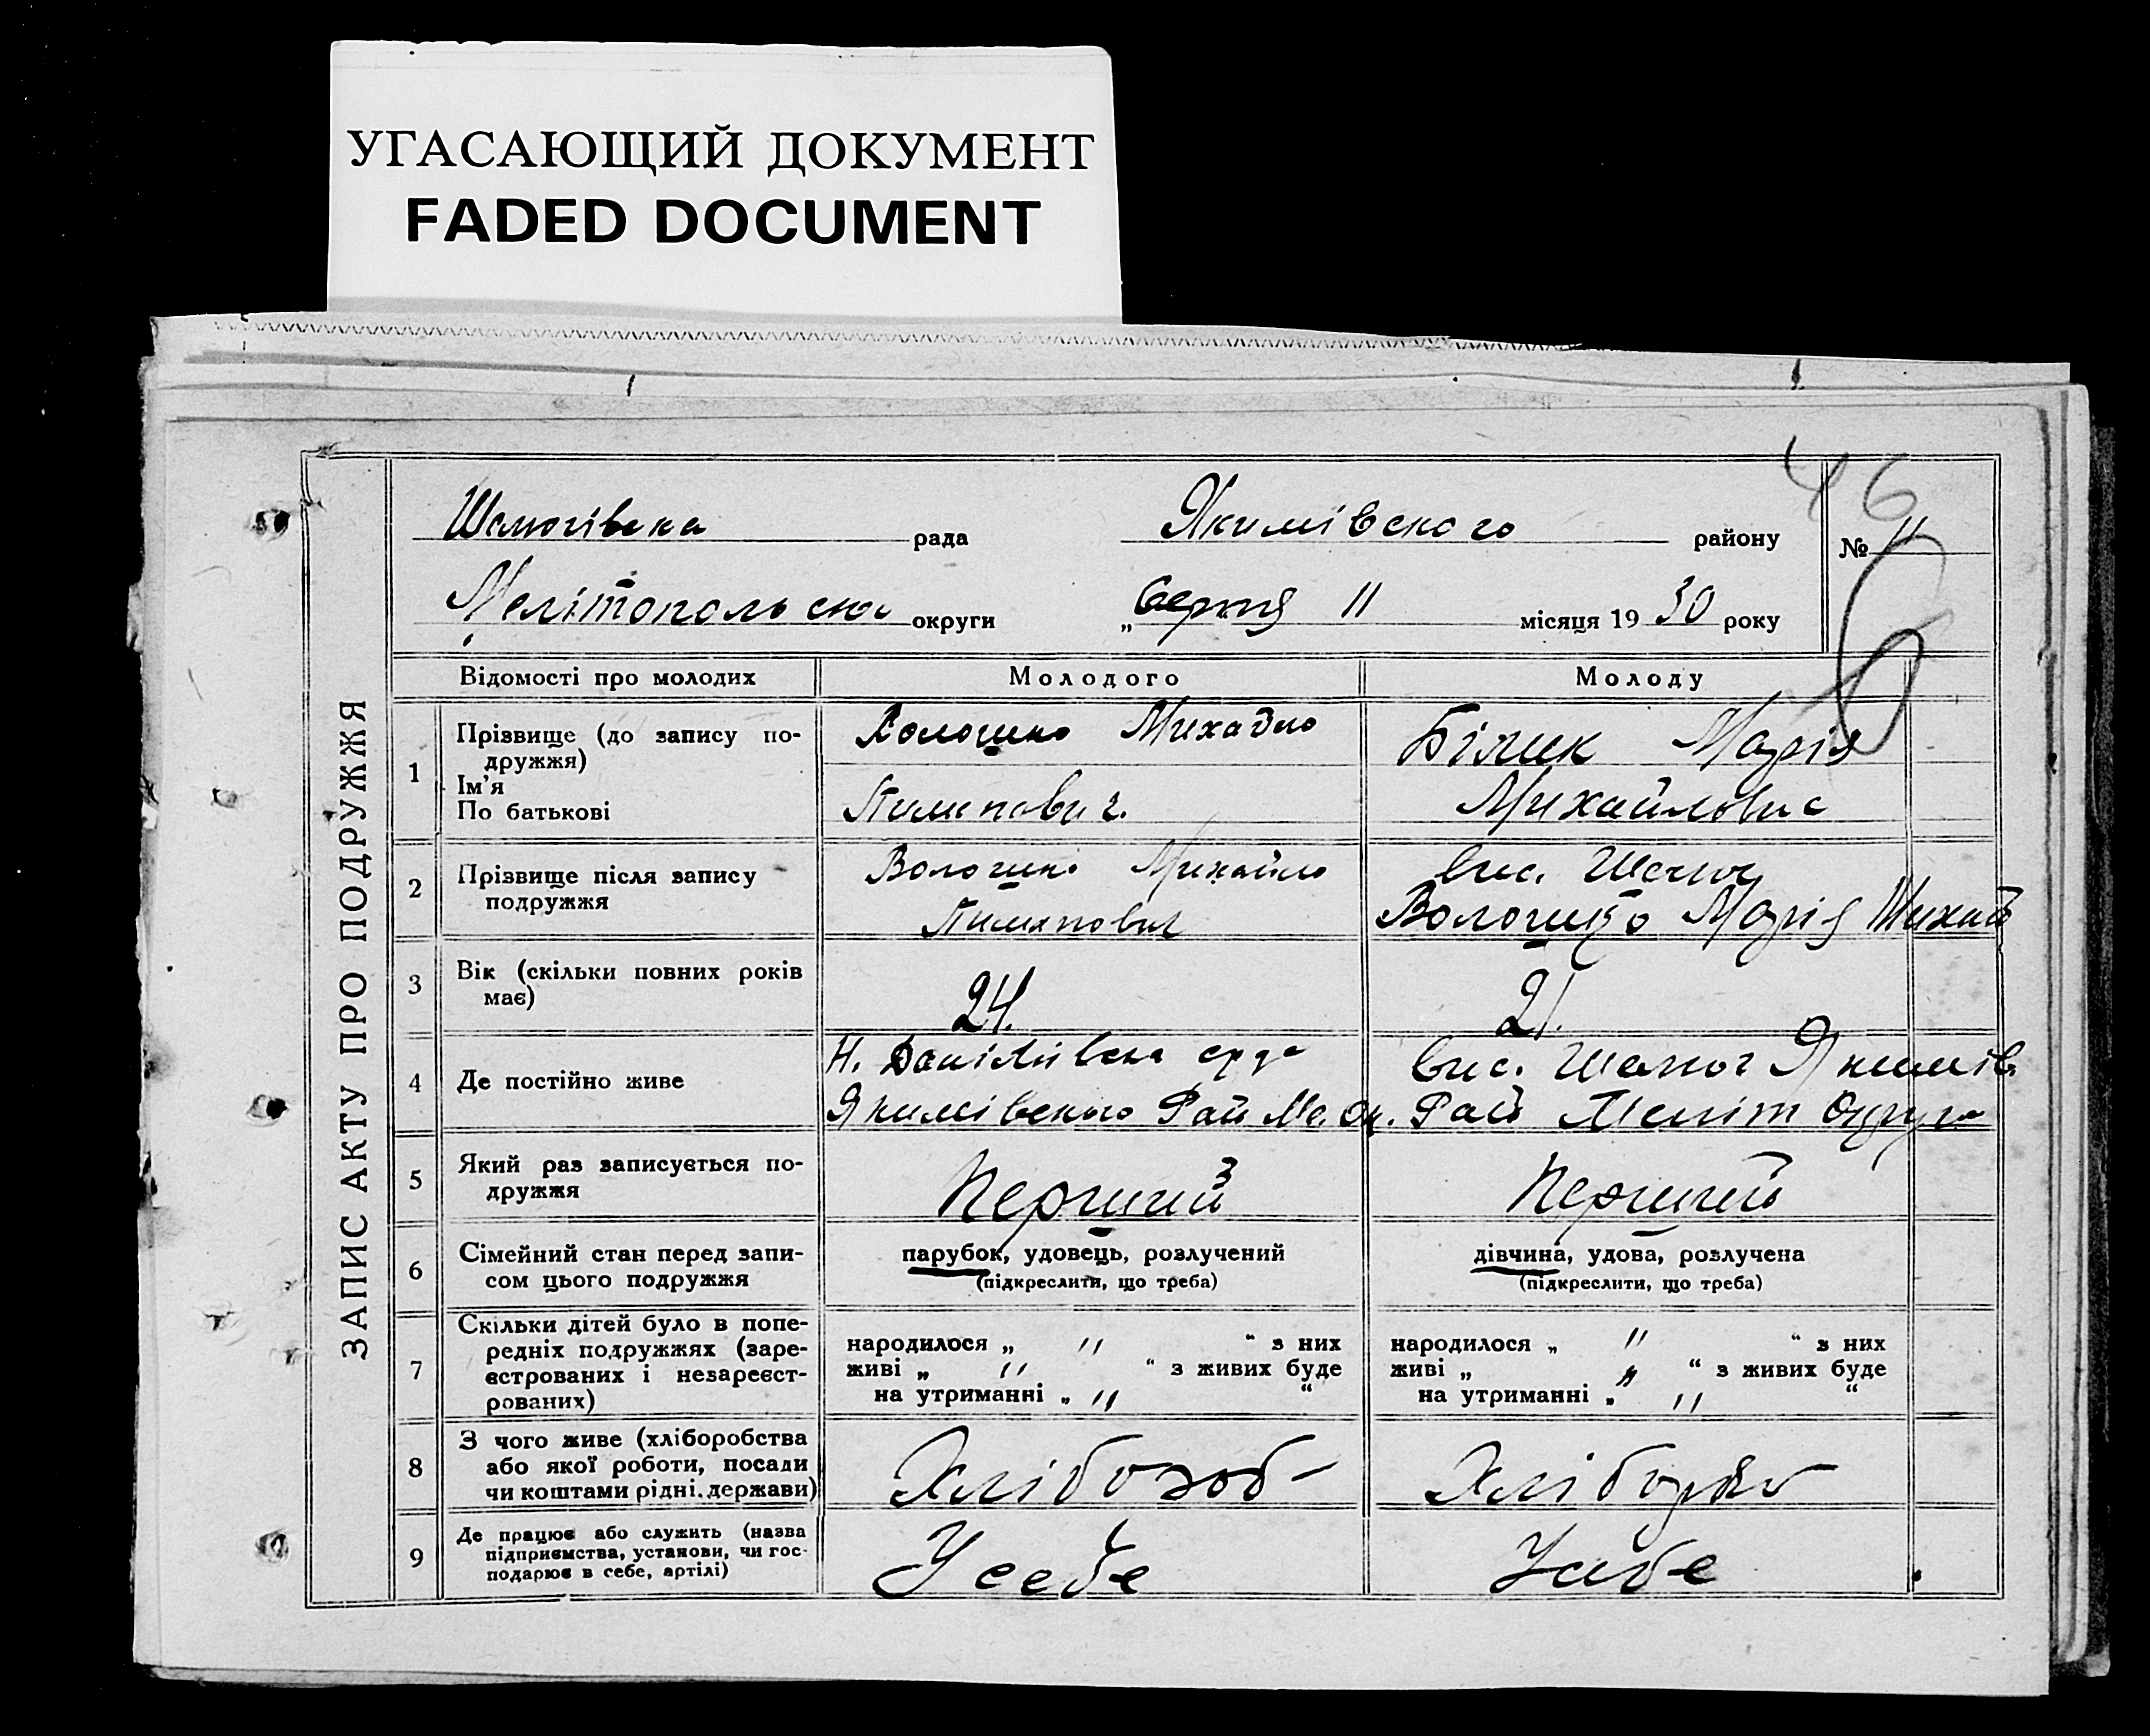 УГАСАЮЩИЙ ДОКУМЕНТ
FADED DOCUMENT
46
рада Якимівского району № 11
округи „Серпня 11 місяця 1930 року
ЗАПИС АКТУ ПРО ПОДРУЖЖЯ
Відомості про молодих Молодого Молоду
1 Прізвище (до запису по-
дружжя)
Ім'я
По батькові
Михайло
Пилипович.
Білик Марія
Михайловна
2 Прізвище після запису
подружжя
Волошко Михайло
Пилипович
Вис. Шелюг
Волошко Марія Михай
3 Вік (скільки повних років
має)
24.
21.
4 Де постійно живе
Н. Данілівська
Якимівського Рай Ме. Ок.
Вис. Шелюг Якимів.
Рай Меліт Округа
5 Який раз записується по-
дружжя
Перший
Перший
6 Сімейний стан перед запи-
сом цього подружжя
парубок, удовець, розлучений
(підкреслити, що треба)
дівчина, удова, розлучена
(підкреслити, що треба)
7 Скільки дітей було в попе-
редніх подружжях (заре-
єстрованих і незареєст-
рованих)
народилося „ " “ з них
живі „ " “ з живих буде
на утриманні „ " “
народилося „ " “ з них
живі „ " “ з живих буде
на утриманні „ " “
8 З чого живе (хліборобства
або якої роботи, посади
чи коштами рідні. держави)
Хлібороб
9 Де працює або служить (назва
підприємства, установи, чи гос-
подарює в себе, артілі)
У себе
У себе